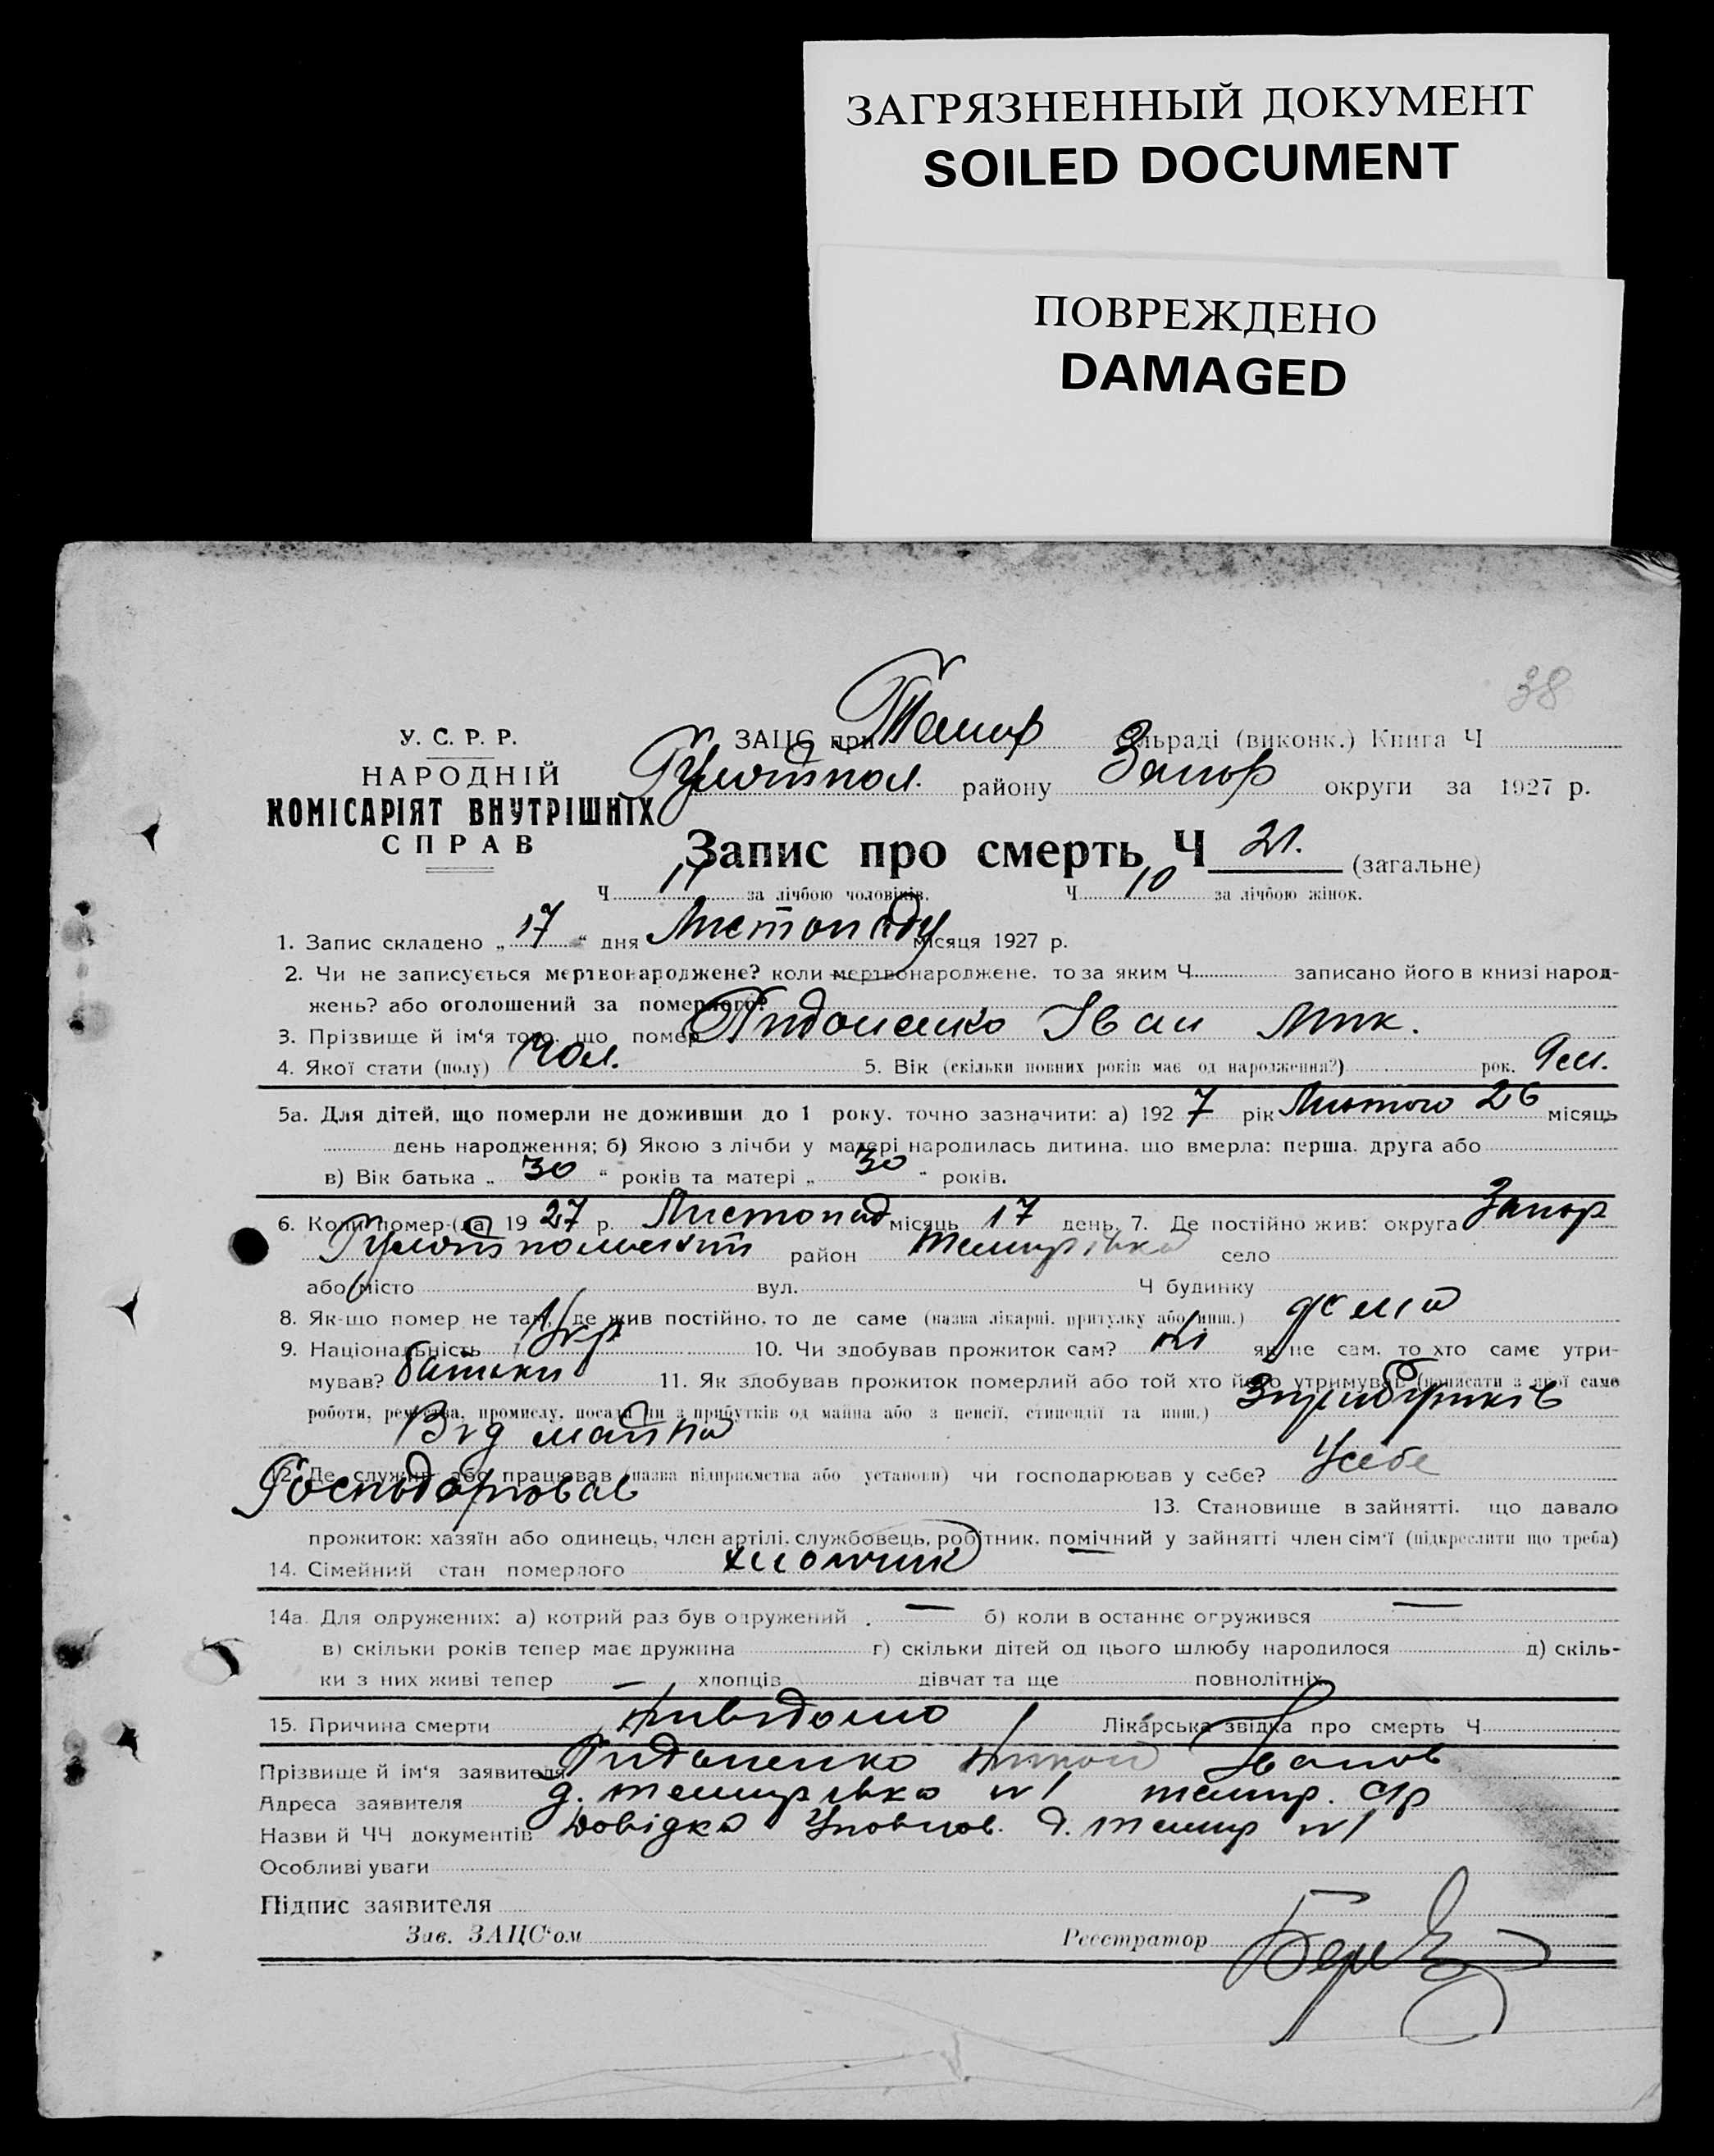 ЗАГРЯЗНЕННЫЙ ДОКУМЕНТ
SOILED DOCUMENT
ПОВРЕЖДЕНО
DAMAGED
38
У. С. Р. Р.
НАРОДНІЙ
КОМІСАРІЯТ ВНУТРІШНІХ
СПРАВ
ЗАЦС при Темир сільраді (виконк.) Книга Ч
Гуляйпол. району Запор округи за 1927 р.
Запис про смерть Ч 21. (загальне)
Ч 11 за лічбою чоловіків. Ч 10 за лічбою жінок.
1. Запис складено „ 17 “ дня Листопаду місяця 1927 р.
2. Чи не записується мертвонароджене? коли мертвонароджене, то за яким Ч записано його в книзі народ-
жень? або оголошений за померлого?
3. Прізвище й ім‘я того, що помер Іван Мик.
4. Якої стати (полу) Чол. 5. Вік (скільки повних років має од народження?) рок. 9 м.
5а. Для дітей, що померли не доживши до 1 року, точно зазначити: а) 192 7 рік Лютого 26 місяць
день народження; б) Якою з лічби у матері народилась дитина, що вмерла: перша, друга або
в) Вік батька „ 30 “ років та матері „ 30 “ років.
6. Коли помер-(ла) 19 27 р. Листопад місяць 17 день. 7. Де постійно жив: округа Запор
Гуляйпольский район Темирівка село
або місто вул. Ч будинку
8. Як-що помер не там, де жив постійно, то де саме (назва лікарні, притулку або инш.) дома
9. Національність Укр 10. Чи здобував прожиток сам? ні як не сам, то хто саме утри-
мував? батьки 11. Як здобував прожиток померлий або той хто його утримував (написати з якої саме
роботи, ремества, промислу, посади чи з прибутків од майна або з пенсії, стипендії та инш.)
Від майна
12. Де служив або працював (назва підприємства або установи) чи господарював у себе? Усебе
Господарював 13. Становище в зайнятті, що давало
прожиток: хазяїн або одинець, член артілі, службовець, робітник, помічний у зайнятті член сім‘ї (підкреслити що треба)
14. Сімейний стан померлого хлопчик
14а. Для одружених: а) котрий раз був одружений — б) коли в останнє огружився —
в) скільки років тепер має дружина г) скільки дітей од цього шлюбу народилося д) скіль-
ки з них живі тепер — хлопців дівчат та ще повнолітніх
15. Причина смерти Лікарська звідка про смерть Ч
Прізвище й ім‘я заявителя
Адреса заявителя д. Темирівка №1 темир. С/р
Назви й ЧЧ документів Довідка Уповнов. д. Темир №1
Особливі уваги
Підпис заявителя
Зав. ЗАЦС‘ом Реєстратор